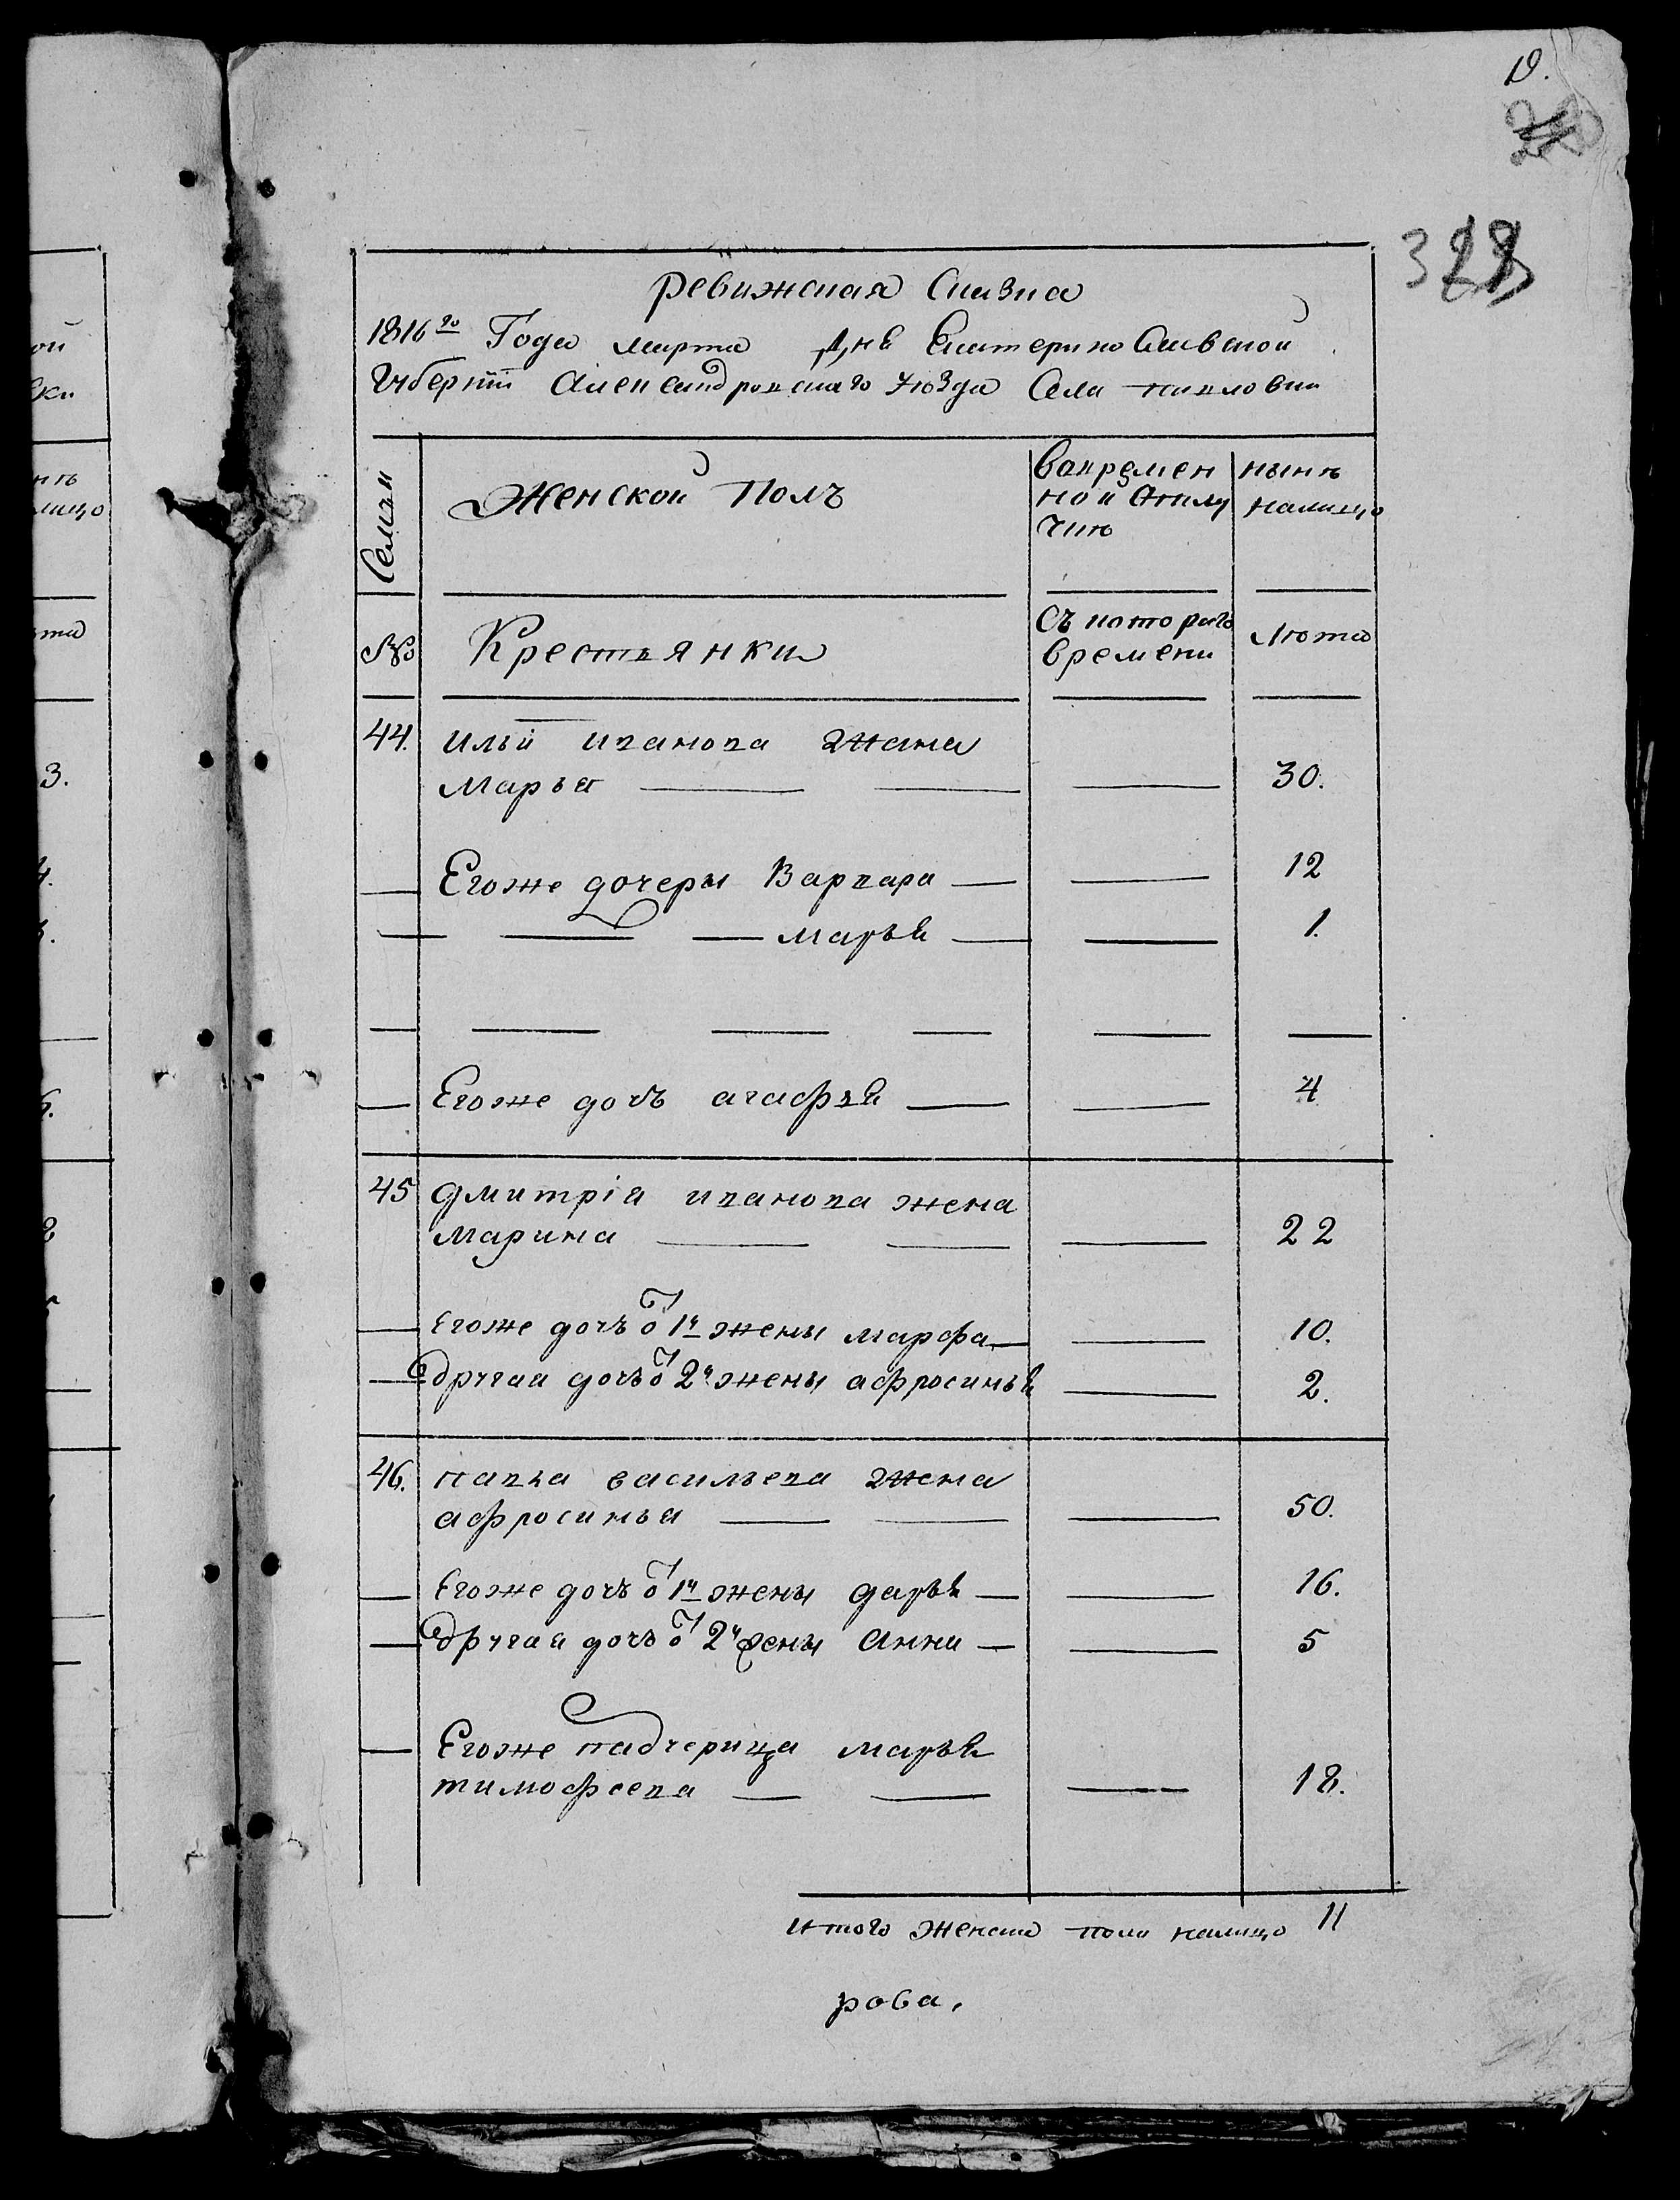 19.
328
Ревижская Сказка
1816го Года марта дня Екатеринославской
Губернии Александровскаго уезда Села павловки
Семьи
Женской Полъ
вовремен
ной отлу
чке
ныне
налицо
№
Крестьянки
Съ котораго
времени
Лета
44. ильи иванова жена
марья 30.
Егоже дочери Варвара 12
марья 1.
Егоже дочъ агафья 4
45 дмитрія иванова жена
марина 22
Егоже дочъ от 1й жены марфа 10.
другая дочъ от 2й жены афросинья 2.
46. павла васильева жена
афросинья 50.
Егоже дочъ от 1й жены дарья 16.
другая дочъ от 2й жены Анна 5
Егоже падчерица марья
тимофеева 18.
итого женска пола налицо 11
рова.
ой
ки
нѣ
лицо
ета
3.
4.